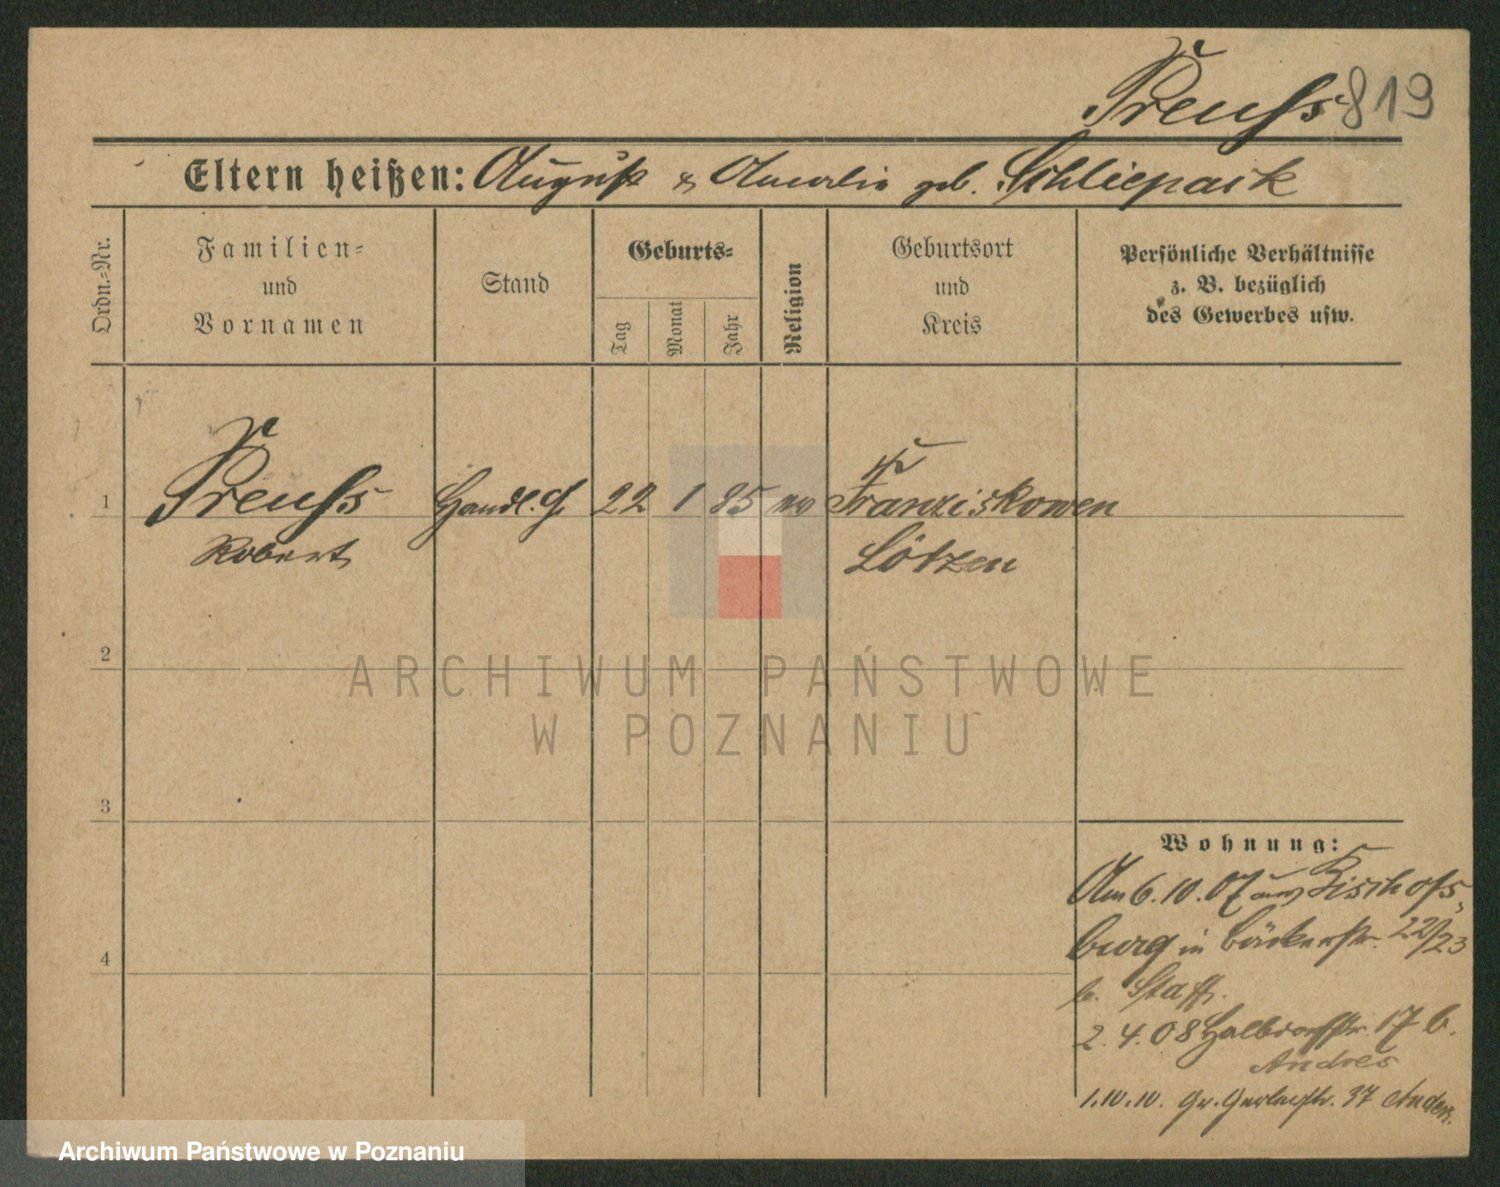 Preuss 819
Eltern heißen: August & Amalie geb. Schliepack
Ordn.=Nr.
Familien=
und
Vornamen
Stand
Geburts=
Tag
Monat
Jahr
Religion
Geburtsort
und
Kreis
Persönliche Verhältnisse
z. B. bezüglich
des Gewerbes usw.
1 Preuss Handl. G. 22 1 85 ev Franziskowen
Robert Lötzen
2
3
4
Wohnung:
Am 6.10.07 aus Bischofs-
burg in Bäckerstr. 22/23
b. Staff.
2.4.08 Halbdorfstr. 17 b.
Andres
1.10.10. Gr. Gerberstr. 37
ARCHIWUM PAŃSTWOWE
W POZNANIU
Archiwum Państwowe w Poznaniu